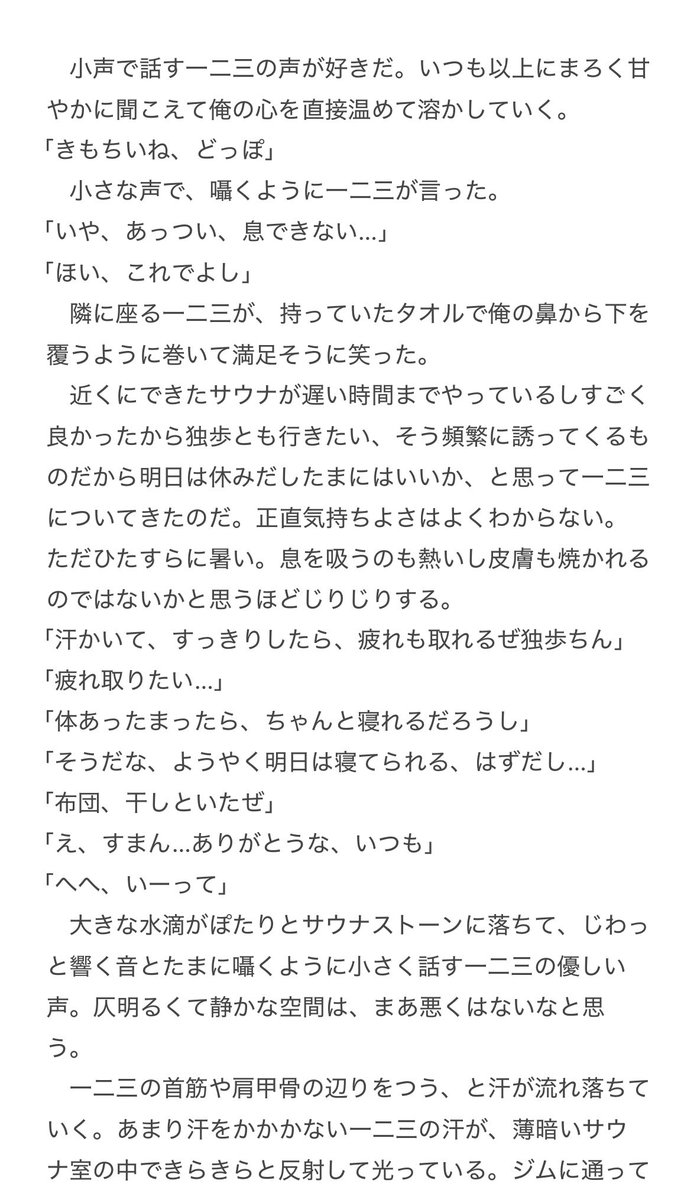 小声で話す一二三の声が好きだ。いつも以上にまろく甘
やかに聞こえて俺の心を直接温めて溶かしていく。
「きもちいね、どっぽ」
　小さな声で、囁くように一二三が言った。
「いや、あっつい、息できない…」
「ほい、これでよし」
　隣に座る一二三が、持っていたタオルで俺の鼻から下を
覆うように巻いて満足そうに笑った。
　近くにできたサウナが遅い時間までやっているしすごく
良かったから独歩とも行きたい、そう頻繁に誘ってくるも
のだから明日は休みだしたまにはいいか、と思って一二三
についてきたのだ。正直気持ちよさはよくわからない。
ただひたすらに暑い。息を吸うのも熱いし皮膚も焼かれる
のではないかと思うほどじりじりする。
「汗かいて、すっきりしたら、疲れも取れるぜ独歩ちん」
「疲れ取りたい…」
「体あったまったら、ちゃんと寝れるだろうし」
「そうだな、ようやく明日は寝てられる、はずだし…」
「布団、干しといたぜ」
「え、すまん…ありがとうな、いつも」
「へへ、いーって」
　大きな水滴がぽたりとサウナストーンに落ちて、じわっ
と響く音とたまに囁くように小さく話す一二三の優しい
声。仄明るくて静かな空間は、まあ悪くはないなと思
う。
　一二三の首筋や肩甲骨の辺りをつう、と汗が流れ落ちて
いく。あまり汗をかかかない一二三の汗が、薄暗いサウ
ナ室の中できらきらと反射して光っている。ジムに通って